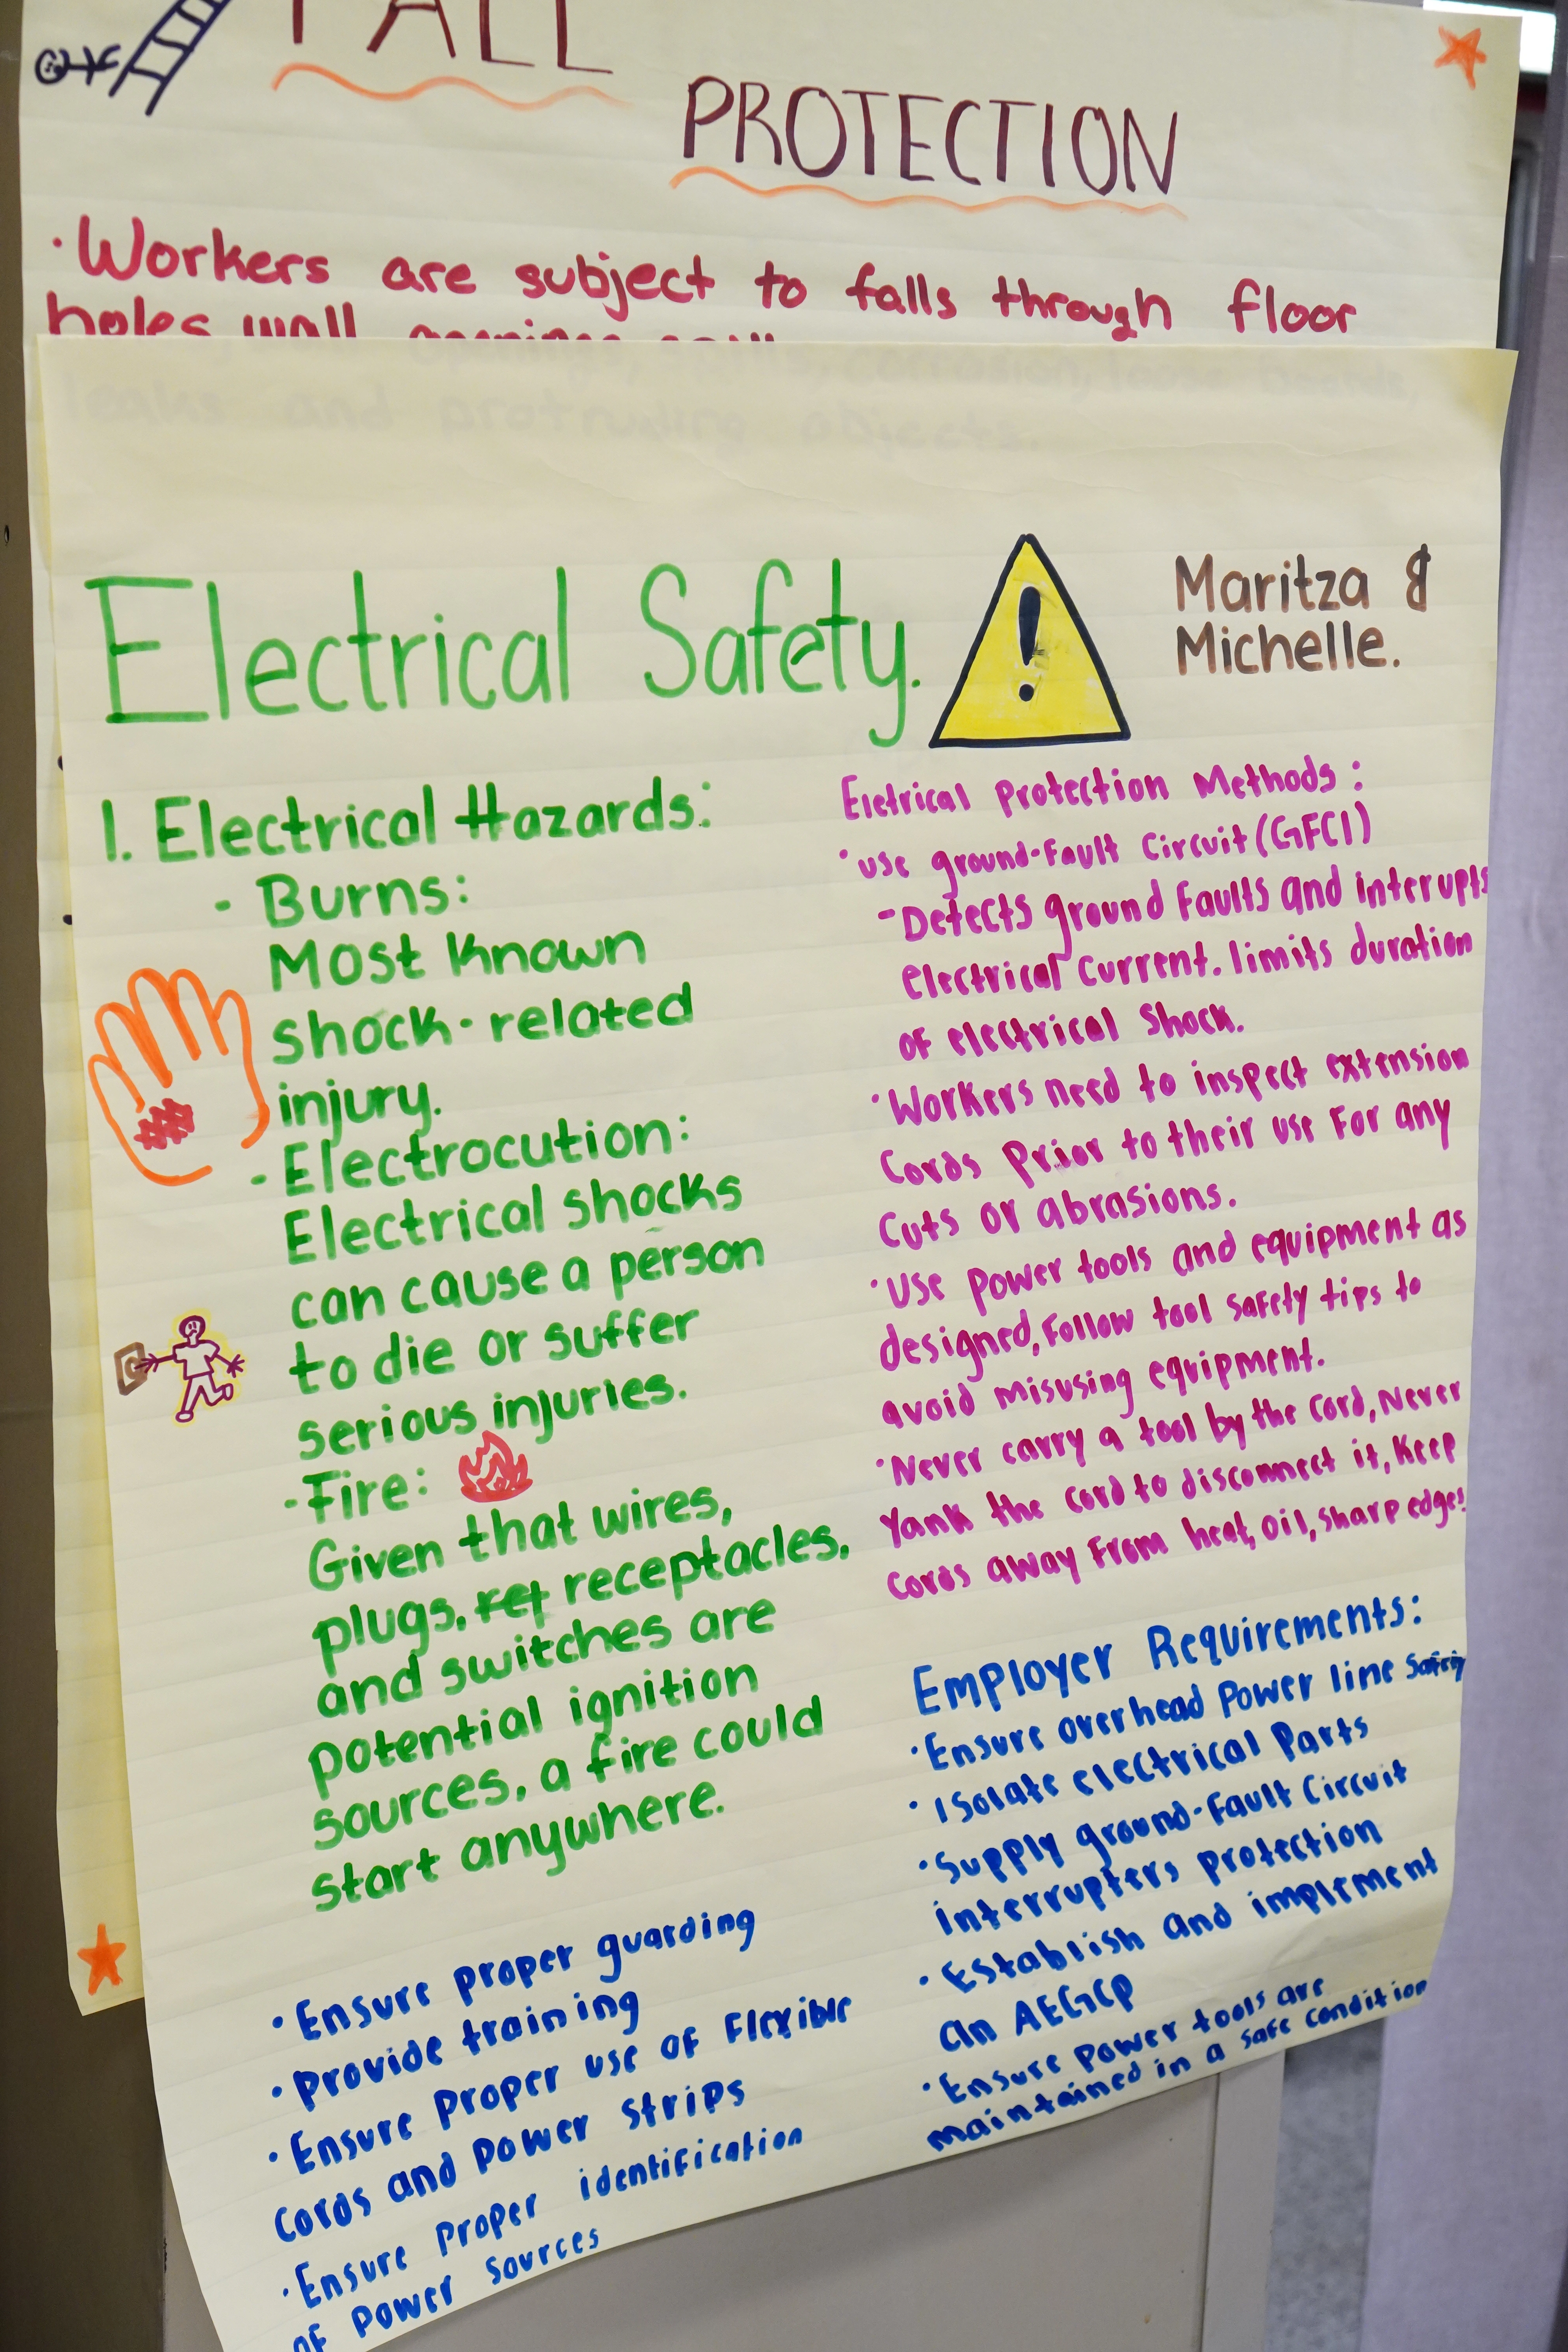 FALL
PROTECTION
·Workers are subject to falls through floor
holes, wall openings,
leaks and protruding objects.
Electrical Safety.
!
Maritza &
Michelle.
1. Electrical Hazards:
- Burns:
Most known
shock-related
injury.
- Electrocution:
Electrical shocks
can cause a person
to die or suffer
serious injuries.
-Fire:
Given that wires,
plugs, ret receptacles,
and switches are
potential ignition
sources, a fire could
start anywhere.
Eletrical Protection Methods:
·use ground-fault Circuit (GFCI)
-Detects ground Faults and interupts
Electrical Current. limits duration
of electrical Shock.
·Workers need to inspect extension
Cords Prior to their use For any
Cuts or abrasions.
·Use power tools and equipment as
designed, Follow tool safety tips to
avoid misusing equipment.
·Never carry a tool by the Cord, Never
Yank the cord to disconnect it, Keep
Cords away From heat, oil, sharp edges!
Employer Requirements:
·Ensure overhead Power line Safety
·Isolate electrical Parts
·Supply ground-fault Circuit
interrupters protection
·Establish and implement
an AEGCP
·Ensure Power tools are
maintained in a safe condition
·Ensure proper guarding
·Provide training
·Ensure Proper use of Flexible
Cords and Power Strips
·Ensure Proper identification
of Power Sources